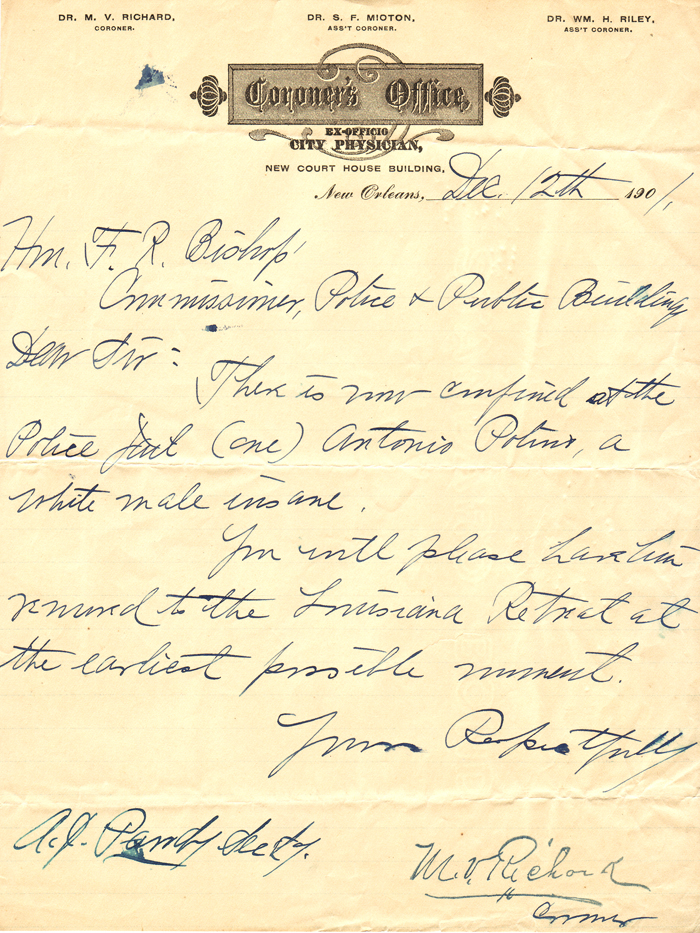 DR. M. V. RICHARD, DR. S. F. MIOTON, DR. WM. H. RILEY,
CORONER. ASS'T CORONER. ASS'T CORONER.
Coroner's Office,
EX-OFFICIO
CITY PHYSICIAN,
NEW COURT HOUSE BUILDING,
New Orleans, Dec. 12th 1901.
Hon. F. R. Bishop
Commissioner, Police & Public Building
Dear Sir:-
There is now confined at the
Police Jail (one) Antonio Polino, a
white male insane.
You will please have him
removed to the Louisiana Retreat at
the earliest possible moment.
Yours Respectfully
A.J. Secty.
M.V. Richard
Coroner